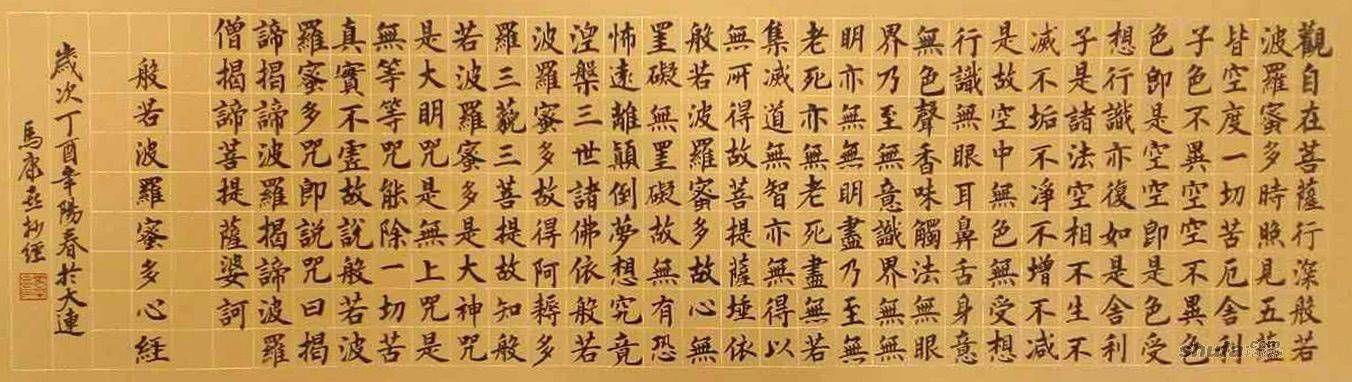 觀自在菩薩行深般若
波羅蜜多時照見五蘊
皆空度一切苦厄舍利
子色不異空空不異色
色即是空空即是色受
想行識亦復如是舍利
子是諸法空相不生不
滅不垢不淨不增不減
是故空中無色無受想
行識無眼耳鼻舌身意
無色聲香味觸法無眼
界乃至無意識界無無
明亦無無明盡乃至無
老死亦無老死盡無苦
集滅道無智亦無得以
無所得故菩提薩埵依
般若波羅蜜多故心無
罣礙無罣礙故無有恐
怖遠離顛倒夢想究竟
涅槃三世諸佛依般若
波羅蜜多故得阿耨多
羅三藐三菩提故知般
若波羅蜜多是大神咒
是大明咒是無上咒是
無等等咒能除一切苦
真實不虛故說般若波
羅蜜多咒即說咒曰揭
諦揭諦波羅揭諦波羅
僧揭諦菩提薩婆訶
般若波羅蜜多心經
歲次丁酉年陽春於大連
馬康 抄經